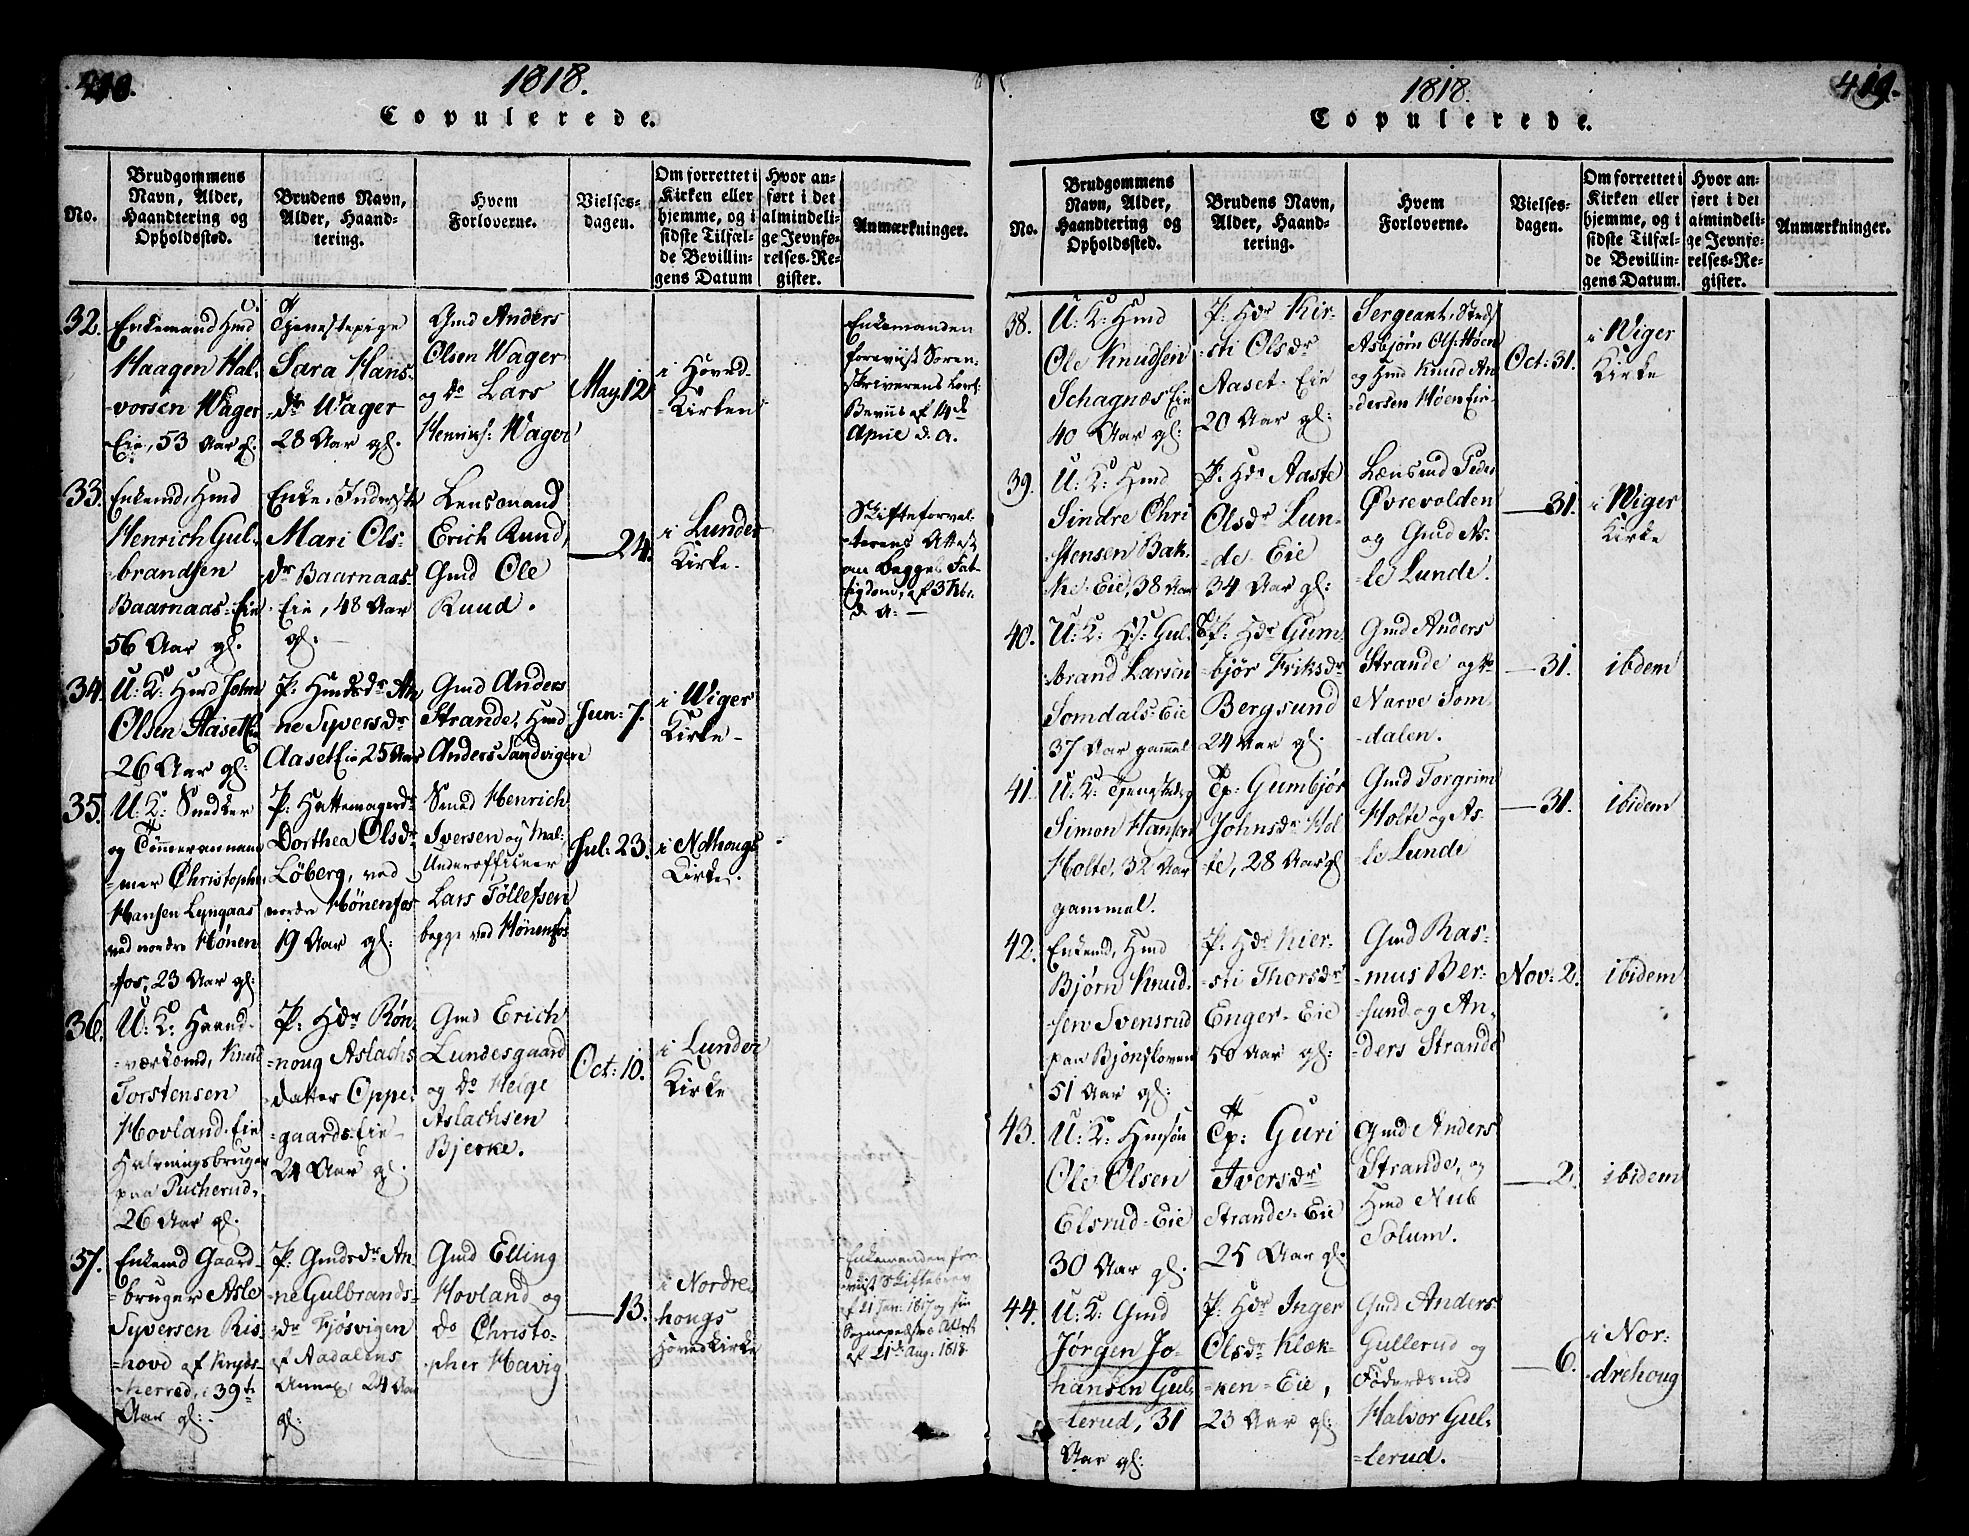 410.
1818.
Copulerede.
No.
Brudgommens
Navn, Alder,
Haandtering og
Opholdssted.
Brudens Navn,
Alder, Haand-
tering.
Hvem
Forloverne.
Vielses-
dagen.
Om forrettet i
Kirken eller
hjemme, og i
sidste Tilfæl-
de Bevillin-
gens Datum
Hvor an-
ført i det
almindeli-
ge Jevnfø-
relses-Re-
gister.
Anmærkninger.
32.
Enkemand Hmd
Haagen Hal-
-vorsen Wager
Eie, 53 Aar gl.
Tjenestepige
Sara Hans-
-dr Wager
28 Aar gl.
Gmd Anders
Olsen Wager
og do Lars
Henriks: Wager
May. 12
i Hoved-
-Kirken
Enkemanden
foreviist Soren-
-skriverens
Beviis af 14d
April d. a.
33.
Enkemd, Hmd
Henrich Gul-
-brandsen
Baarnaas-Eie
56 Aar gl.
Enke, Inderste
Mari Ols-
-dr Baarnaas-
-Eie, 48 Aar
gl.
Lensmand
Erich Ruud,
Gmd Ole
Ruud.
—24.
i Lunder
Kirke.
Skifteforval-
-terens Attest
om begges Fat-
-tigdom, af
d. A.—
34.
U: K: Hmd John
Olsen Aaset
26 Aar gl:
P: Hmdsdr An
ne Syversdr
Aaset Eie 25 Aar
Gmd Anders
Strande, Hmd
Anders Sandvigen
Jun: 7.
i Wiger
Kirke
35.
U: K: Snedker
og Tømmermannem
-mer Christopher
Hansen Lyngaas
ved nordre Hønen
fos, 23 Aar gl:
P: Hattemagerdr
Dorthea Olsdr
Löberg, ved
nordre Hønenfos
19 Aar gl:
Smed Henrich
Iversen og
Underofficeer
Lars Tollefsen
begge ved Hønenfos
Jul: 23.
i Ndhougs
Kirke.
36.
U: K: Haand-
-værksmd, Knud
Torstensen
Hovland-Eie
Halvningsbruger
paa Pucherud,
26 Aar gl.
P: Hdr Røn-
-noug Aslachs
datter Oppe-
-gaards-Eie
24 Aar gl.
Gmd Erich
Lundesgaard
og do Helge
Aslachsen
Bjerke.
Oct: 10.
i Lunder
Kirke
37.
Enkemd Gaard-
-bruger Asle
Syversen Ris-
-hovd af Kryds-
-herred, 39te
Aar gl:
P: Gmdsdr An-
-ne Gulbrands-
-dr Fjøsvigen
af Aadalens
Annex, 24 Aar
gl:
Gmd Elling
Hovland og
do Christo-
-pher Havig
—13.
i Nordre
hougs
Hovedkirke
Enkemanden fore-
-viist Skiftebrev
af 21 Jan: 1817 og sin
Sognepræsts Attest
af 21de Aug. 1818.
1818.
419.
Copulerede.
No.
Brudgommens
Navn, Alder,
Haandtering og
Opholdssted.
Brudens Navn,
Alder, Haand-
tering.
Hvem
Forloverne.
Vielses-
dagen.
Om forrettet i
Kirken eller
hjemme, og i
sidste Tilfæl-
de Bevillin-
gens Datum.
Hvor an-
ført i det
almindeli-
ge Jevnfø-
relses-Re-
gister.
Anmærkninger.
38.
U: K: Hmd
Ole Knudsen
Schagnæs Eie
40 Aar gl:
P: Hdr Kir-
-sti Olsdr
Aaset-Eie
20 Aar gl:
Sergeant,
Asbjørn Ols: Høen
og Hmd Knud An
dersen Høen Eie
Oct: 31.
i Wiger
Kirke
39.
U: K: Hmd
Sindre Chri
-stensen Bak-
ke-Eie, 38 Aar
P: Hdr Aaste
Olsdr Lun-
-de-Eie
34 Aar gl:
Lænsmd Peder
Øvrevolden
og Gmd As-
-le Lunde.
—31.
i Wiger
Kirke
40.
U: K: Hs: Gul-
-brand Larsen
Somdals-Eie
37 Aar gammel
P: Hdr Gum-
bjør Eriksdr
Bergsund
24 Aar gl.
Gmd Anders
Strande og do
Narve Som-
-dalen.
—31.
ibidem
41.
U: K: Tjenestedr
Simon Hansen
Holte, 32 Aar
gammel.
Tp: Gumbjør
Johnsdr Hol
-te, 28 Aar gl
Gmd Torgrim
Holte og As-
-le Lunde
—31.
ibidem
42.
Enkemd, Hmd
Bjørn Knud-
sen Svensrud
paa Bjonskoven
51 Aar gl:
P: Hdr Kier-
-sti Thorsdr
Enger-Eie
50 Aar gl:
Gmd Ras-
-mus Ber-
-sund og An-
-ders Strande
Nov: 2.
ibidem
43.
U: K: Hmsøn
Ole Olsen
Elsrud-Eie
30 Aar gl.
Tp: Guri
Iversdr
Strande-Eie
25 Aar gl.
Gmd Anders
Strande, og
Hmd Nub
Solum.
—2.
ibidem
44.
U: K: Gmd
Jørgen Jo-
hansen Gul-
-lerud, 31
Aar gl:
P: Hdr Inger
Olsdr Klæk-
-ken-Eie,
23 Aar gl:
Gmd Anders
Gullerud og
Föderaadsmd
Halvor Gul-
-lerud.
—6.
i Nor-
-drehoug